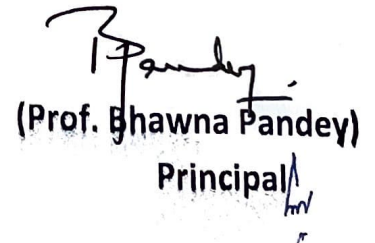 BPandey
(Prof. Bhawna Pandey)
Principal